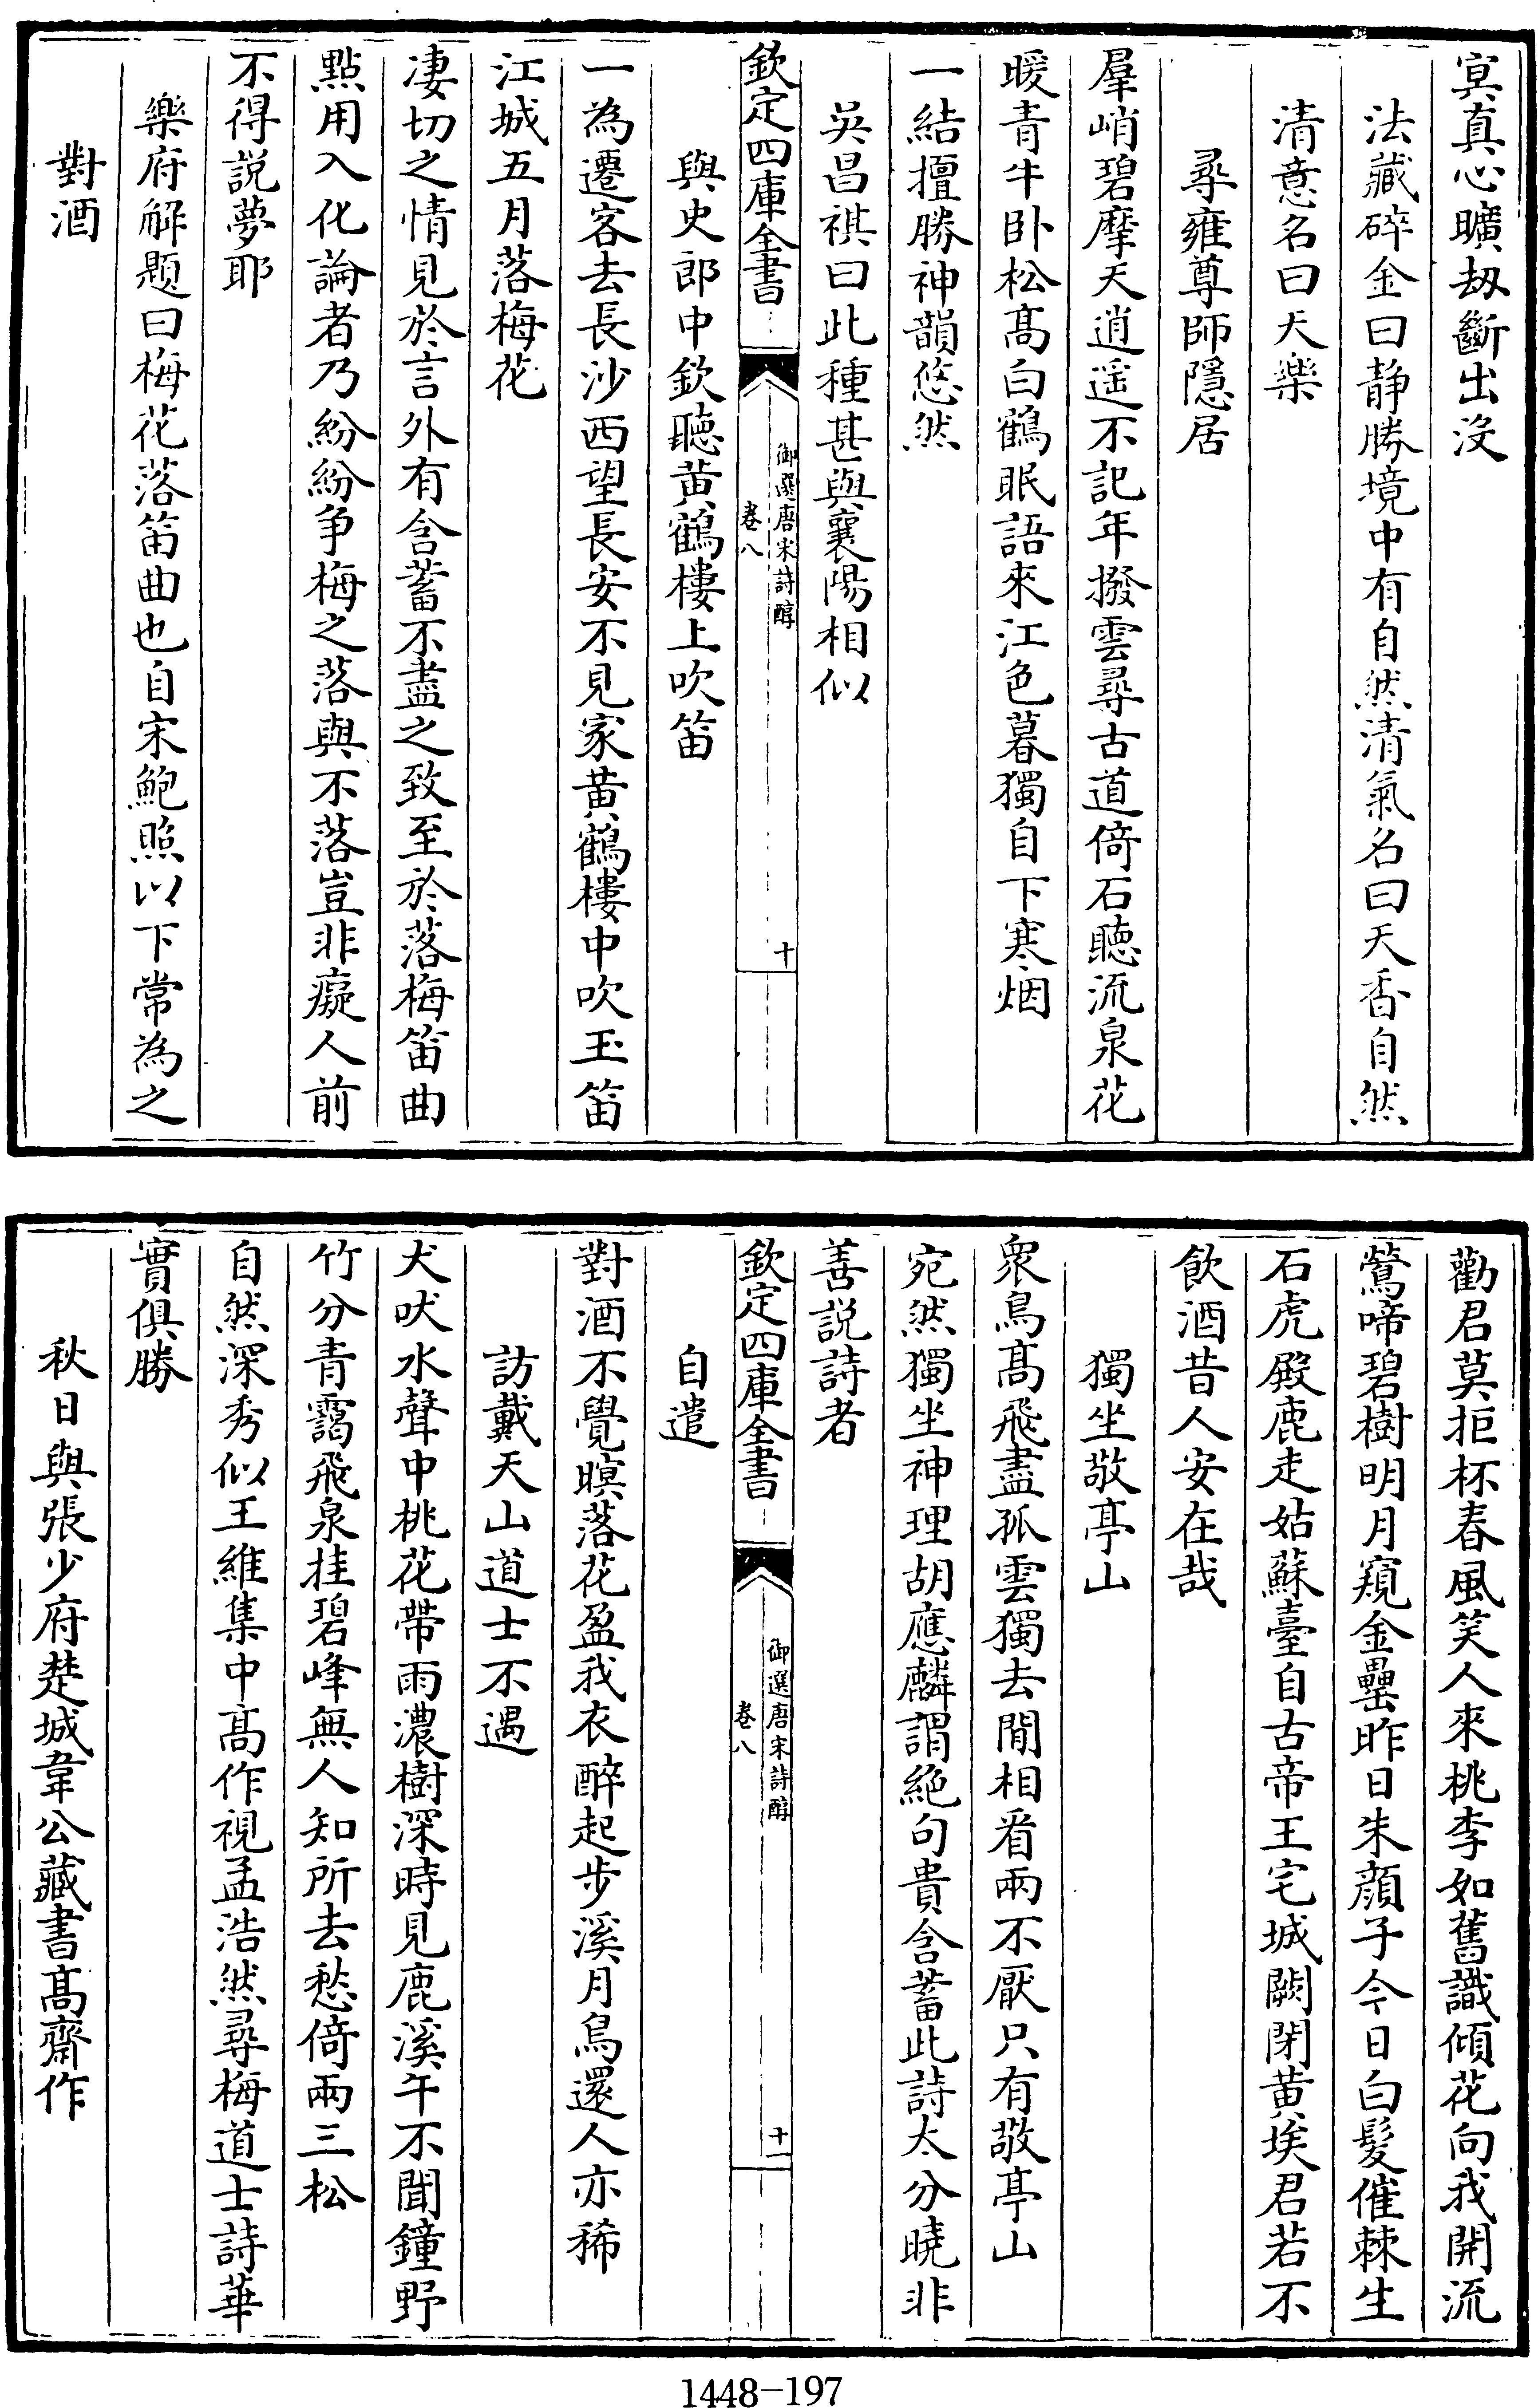 冥真心曠劫斷出没
法藏碎金曰静勝境中有自然清氣名曰天香自然
清意名曰天樂
尋雍尊師隱居
羣峭碧摩天逍遥不記年撥雲尋古道倚石聽流泉花
暖青牛卧松髙白鶴眠語來江色暮獨自下寒烟
一結擅勝神韻悠然
吳昌祺曰此種甚與襄陽相似
欽定四庫全書
御選唐宋詩醇
卷八
十
與史郎中欽聽黄鶴樓上吹笛
一為遷客去長沙西望長安不見家黄鶴樓中吹玉笛
江城五月落梅花
凄切之情見於言外有含蓄不盡之致至於落梅笛曲
點用入化論者乃紛紛争梅之落與不落豈非癡人前
不得説夢耶
樂府解題曰梅花落笛曲也自宋鮑照以下常為之
對酒
勸君莫拒杯春風笑人來桃李如舊識傾花向我開流
鶯啼碧樹明月窺金罍昨日朱顔子今日白髮催棘生
石虎殿鹿走姑蘇臺自古帝王宅城闕閉黄埃君若不
飲酒昔人安在哉
獨坐敬亭山
衆鳥髙飛盡孤雲獨去閒相看兩不厭只有敬亭山
宛然獨坐神理胡應麟謂絶句貴含蓄此詩太分曉非
善説詩者
欽定四庫全書
御選唐宋詩醇
卷八
十一
自遣
對酒不覺暝落花盈我衣醉起步溪月鳥還人亦稀
訪戴天山道士不遇
犬吠水聲中桃花帶雨濃樹深時見鹿溪午不聞鐘野
竹分青靄飛泉挂碧峰無人知所去愁倚兩三松
自然深秀似王維集中髙作視孟浩然尋梅道士詩華
實俱勝
秋日與張少府楚城韋公藏書髙齋作
1448-197